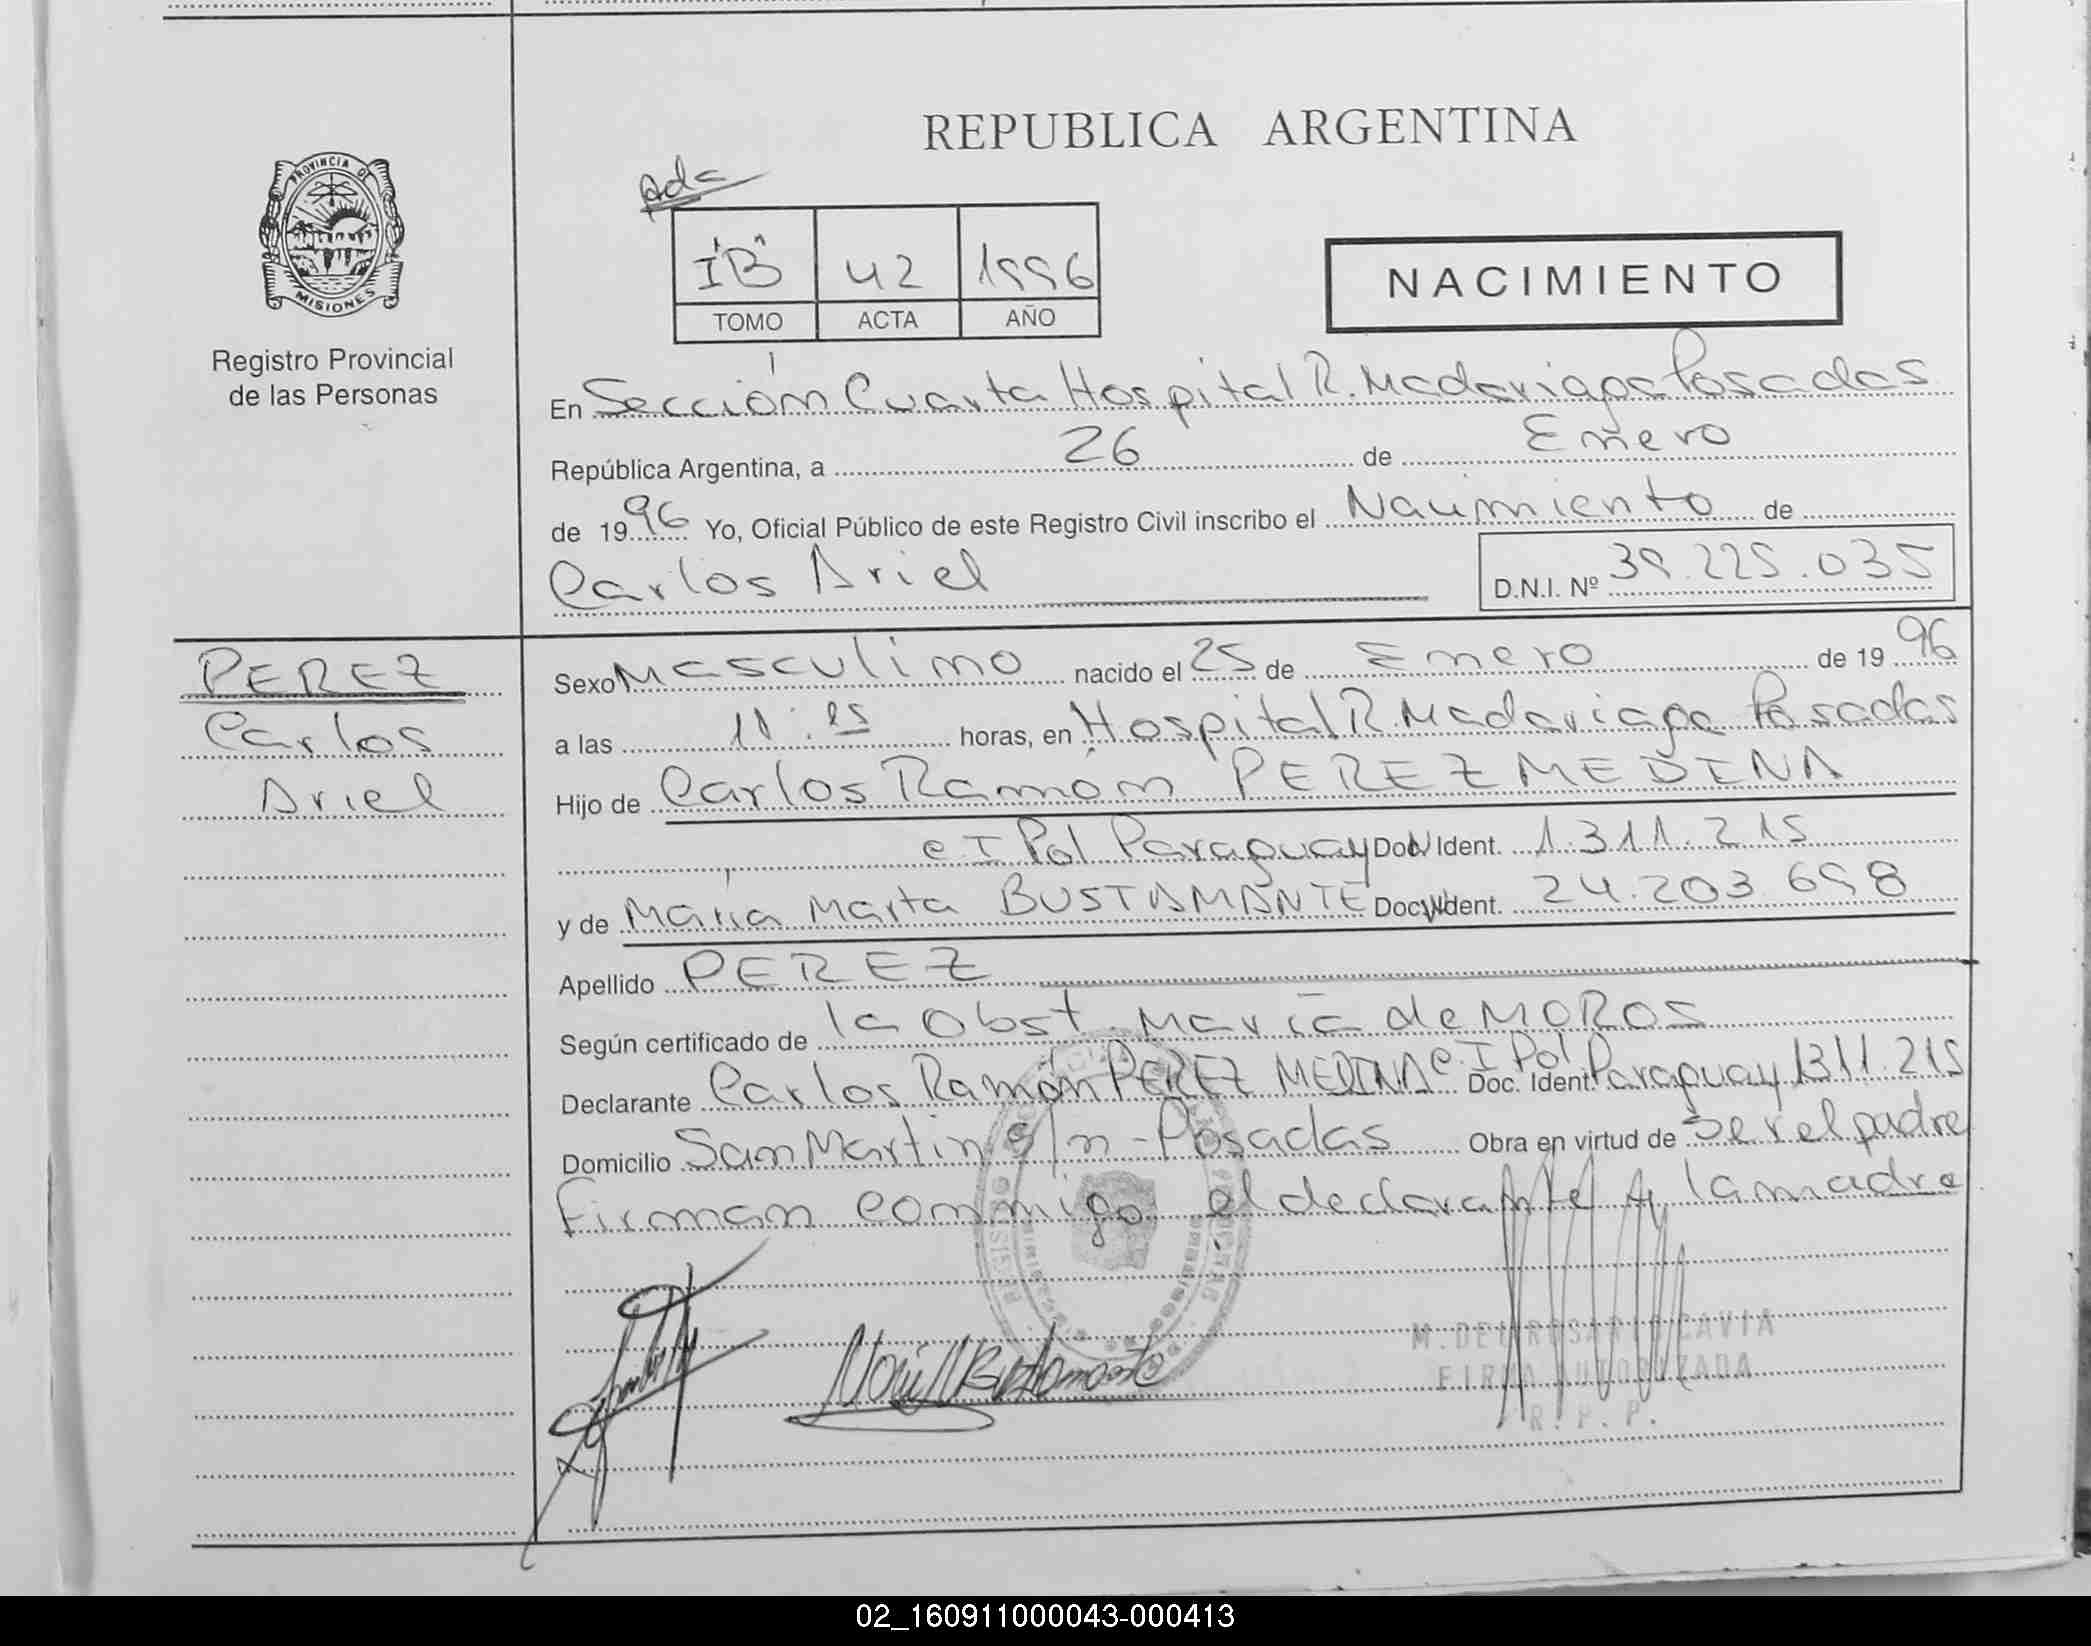 REPUBLICA ARGENTINA
PROVINCIA DE
MISIONES
Registro Provincial
de las Personas
I "B" 42 1996
TOMO ACTA AÑO
NACIMIENTO
En Sección Cuarta Hospital R. Madariaga Posadas
República Argentina, a 26 de Enero
de 1996 Yo, Oficial Público de este Registro Civil inscribo el Nacimiento de
Carlos Ariel
D.N.I. Nº 39.225.035
PEREZ
Carlos
Ariel
Sexo Masculino nacido el 25 de Enero de 1996
a las 11:25 horas, en Hospital R. Madariaga Posadas
Hijo de Carlos Ramón PEREZ MEDINA
c.I Pol Paraguay Doc. Ident. 1.311.215
y de María Marta BUSTAMANTE Doc. Ident. 24.203.698
Apellido PEREZ
Según certificado de la Obst. María de MOROS
Declarante Carlos Ramón PEREZ MEDINA c.I Pol Doc. Ident. Paraguay 1311.215
Domicilio San Martin s/n - Posadas Obra en virtud de Ser el padre
Firman conmigo el declarante y la madre
M. DEL ROSARIO CAVIA
FIRMA AUTORIZADA
R. P. P.
02_160911000043-000413